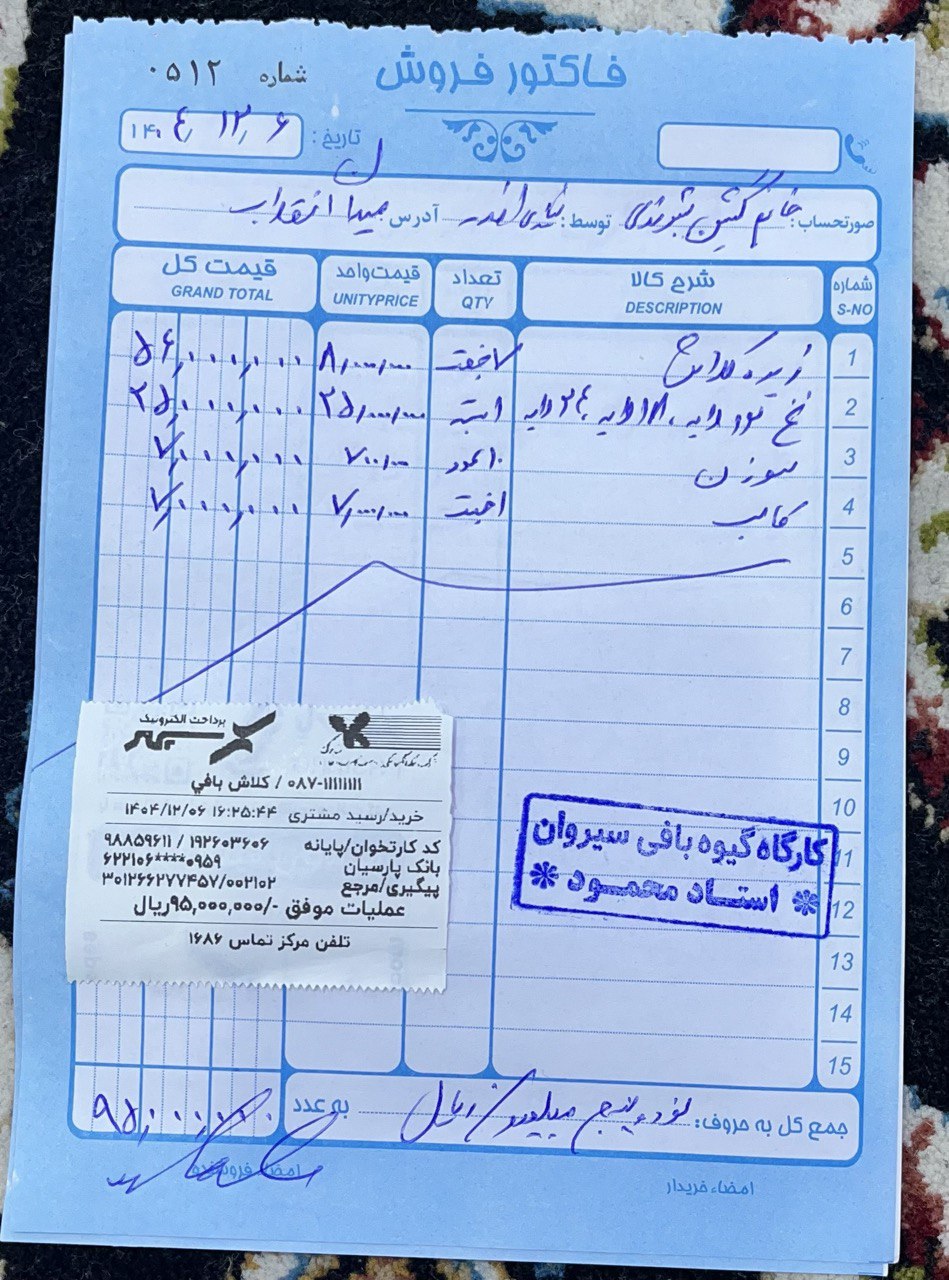 فاکتور فروش
شماره ۰۵۱۲
تاریخ: ۱۴۰۴/۱۲/۶
صورتحساب: خانم توسط: آدرس میدان انقلاب
شماره S-NO شرح کالا DESCRIPTION تعداد QTY قیمت واحد UNITYPRICE قیمت کل GRAND TOTAL
1 زیره کلاش ۷ جفت ۸,۰۰۰,۰۰۰ ۵۶,۰۰۰,۰۰۰
2 نخ ۱ بسته ۲۵,۰۰۰,۰۰۰ ۲۵,۰۰۰,۰۰۰
3 سوزن ۱۰ عدد ۷۰۰,۰۰۰ ۷,۰۰۰,۰۰۰
4 قالب ۱ جفت ۷,۰۰۰,۰۰۰ ۷,۰۰۰,۰۰۰
5
6
7
8
9
10
11
12
13
14
15
پرداخت الکترونیک
سپهر
۰۸۷-۱۱۱۱۱۱۱۱ / کلاش بافي
خرید/رسید مشتری ۱۴۰۴/۱۲/۰۶ ۱۶:۲۵:۴۴
کد کارتخوان/پایانه ۱۹۲۶۰۳۶۰۶ / ۹۸۸۵۹۶۱۱
بانک پارسیان ۶۲۲۱۰۶****۰۹۵۹
پیگیری/مرجع ۳۰۱۲۶۶۲۷۷۴۵۷/۰۰۲۱۰۲
عملیات موفق -/۹۵,۰۰۰,۰۰۰ریال
تلفن مرکز تماس ۱۶۸۶
کارگاه گیوه بافی سیروان
* استاد محمود *
جمع کل به حروف: نود و پنج میلیون ریال به عدد ۹۵,۰۰۰,۰۰۰
امضاء خریدار
امضاء فروشنده